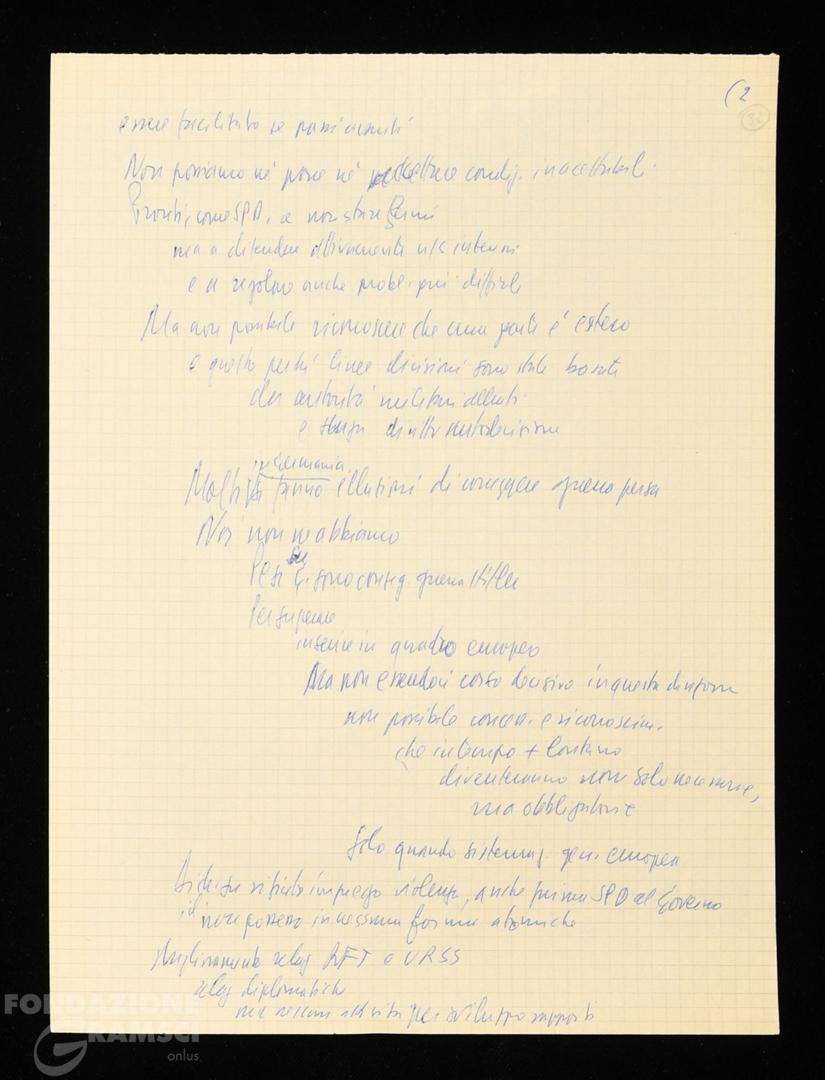 (2
32
essere facilitato se passi avanti
Non possiamo né porre né accettare condiz. inaccettabili.
Pronti, come SPD, a non stare fermi
ma a difendere attivamente n/s interessi
e a regolare anche probl. più difficili
Ma non possibile riconoscere che una parte è estero
e questo perché linee divisioni sono state
da autorità militari alleati
e senza diritto autodecisione
in Germania
Molti fanno illusioni di correggere guerra persa
Noi non ne abbiamo
sono conseg. guerra Hitler
Per superare
inserire in quadro europeo
Ma non essendoci corso decisivo in questa direzione
non possibile concess. e riconoscim.
che in tempo + lontano
diventeranno non solo necessarie,
ma obbligatorie
Solo quando sistemaz. gen. europea
Dich. su rifiuto impiego violenza, anche prima SPD al Governo
non possesso in nessuna forma atomiche
Miglioramento relaz. RFT e URSS
relaz. diplomatiche
ma per sviluppo rapporti
FONDAZIONE
GRAMSCI
onlus